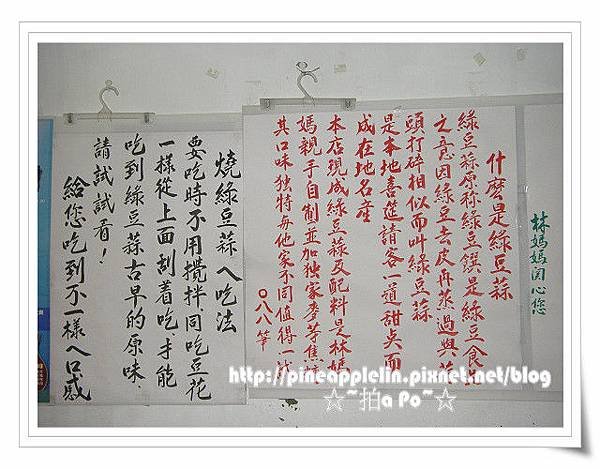 林媽媽関心您
什麼是綠豆蒜
綠豆蒜原称綠豆饌是綠豆食
之意因綠豆去皮再蒸過與蒜
頭打碎相似而叫綠豆蒜
是本地喜筵請客一道甜美而
成在地名產
本店現成綠豆蒜及配料是林媽
媽親手自製並加独家麥芽焦
其口味独特每他家不同值得一試
〇八八筆
燒綠豆蒜ㄟ吃法
要吃時不用攪拌同吃豆花
一樣從上面刮着吃才能
吃到綠豆蒜古早的原味
請試試看！
給您吃到不一樣ㄟ口感
http://pineapplelin.pixnet.net/blog
☆~拍a Po~☆